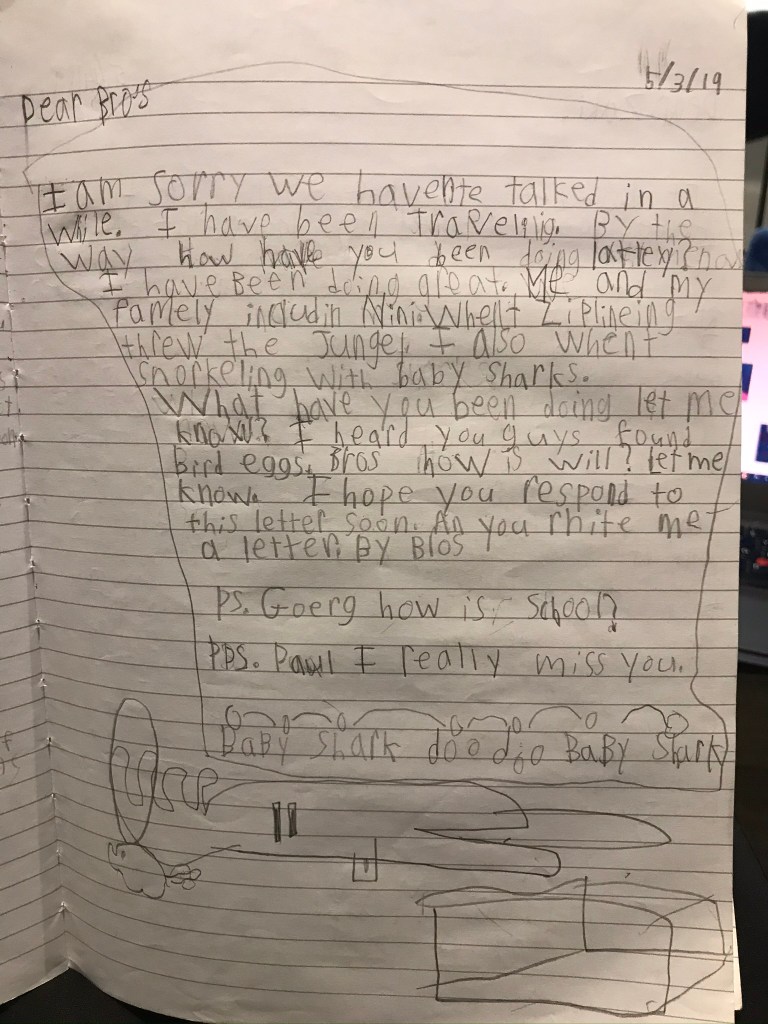 5/3/19
Dear Bro's
I am sorry we havente talked in a
wile. I have been Travelnig. By the
way How have you been doing
I have Been doing great. Me and my
famely includin Nini whent Ziplineing
threw the Jungel, I also whent
snorkeling with baby sharks.
What have you been doing let me
know? I heard you guys found
Bird eggs. Bros how is will? let me
know. I hope you respond to
this letter soon. An you rhite me
a letter. By Blos
PS. Goerg how is School?
PPS. Paul I really miss you.
BaBy Shark doo doo BaBy Shark